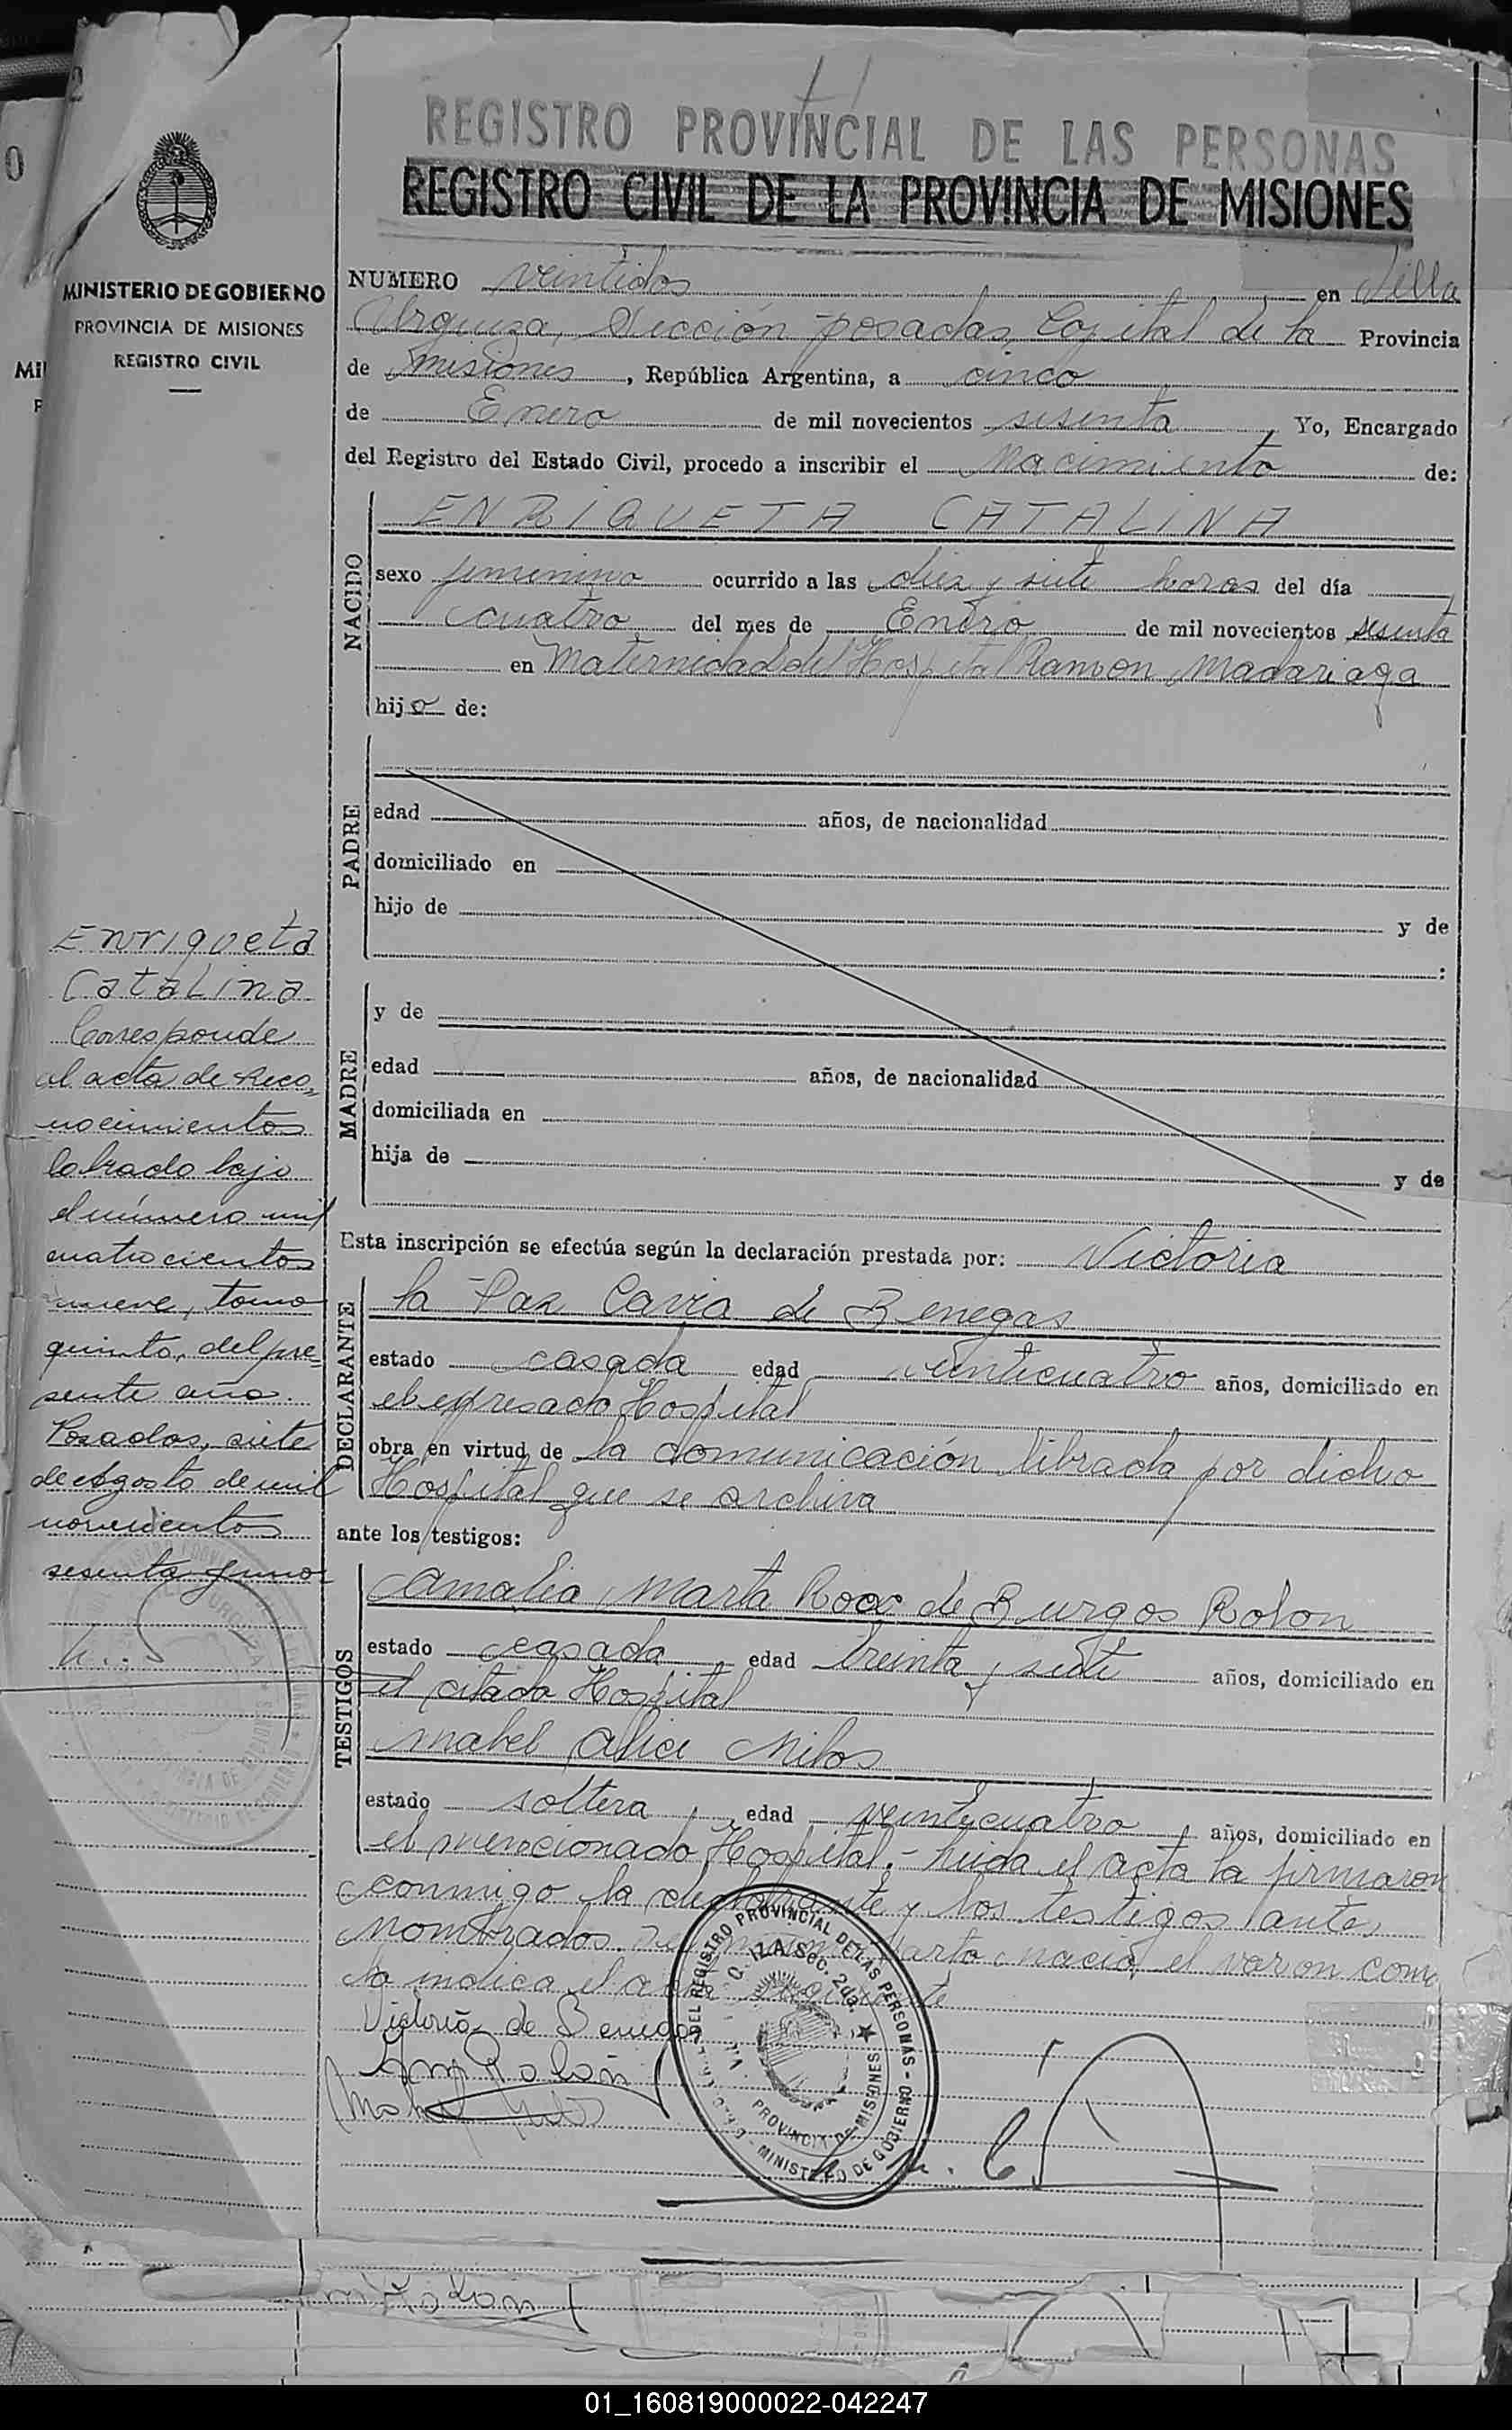 REGISTRO PROVINCIAL DE LAS PERSONAS
REGISTRO CIVIL DE LA PROVINCIA DE MISIONES
MINISTERIO DE GOBIERNO
PROVINCIA DE MISIONES
REGISTRO CIVIL
NUMERO veintidos en Villa
Urquiza, Sección posadas, Capital de la Provincia
de misiones, República Argentina, a cinco
de Enero de mil novecientos sesenta, Yo, Encargado
del Registro del Estado Civil, procedo a inscribir el Nacimiento de:
NACIDO
ENRIQUETA CATALINA
sexo femenino ocurrido a las diez y siete horas del día
cuatro del mes de Enero de mil novecientos sesenta
en Maternidad del Hospital Ramon Madariaga
hija de:
PADRE
edad años, de nacionalidad
domiciliado en
hijo de y de
:
MADRE
y de
edad años, de nacionalidad
domiciliada en
hija de y de
Esta inscripción se efectúa según la declaración prestada por: Victoria
DECLARANTE
la Paz Cavia de Benegas
estado casada edad veinticuatro años, domiciliado en
el expresado Hospital
obra en virtud de la comunicación librada por dicho
Hospital que se archiva
ante los testigos:
TESTIGOS
Amalia Marta Roca de Burgos Rolon
estado casada edad treinta y siete años, domiciliado en
el citado Hospital
Mabel Alice Milos
estado soltera, edad veinticuatro, años, domiciliado en
el mencionado Hospital.- Leída el acta la firmaron
conmigo la declarante y los testigos antes
nombrados. Del mismo parto nació el varon como
lo indica el acta siguiente
Victoria de Benegas
Enrriqueta
Catalina
Corresponde
al acta de Reco-
nocimiento
labrado bajo
el número mil
cuatrocientos
nueve, tomo
quinto, del pre-
sente año.
Posadas, siete
de Agosto de mil
novecientos
sesenta y uno
REGISTRO PROVINCIAL DE LAS PERSONAS - MINISTERIO DE GOBIERNO
PROVINCIA DE MISIONES
01_160819000022-042247